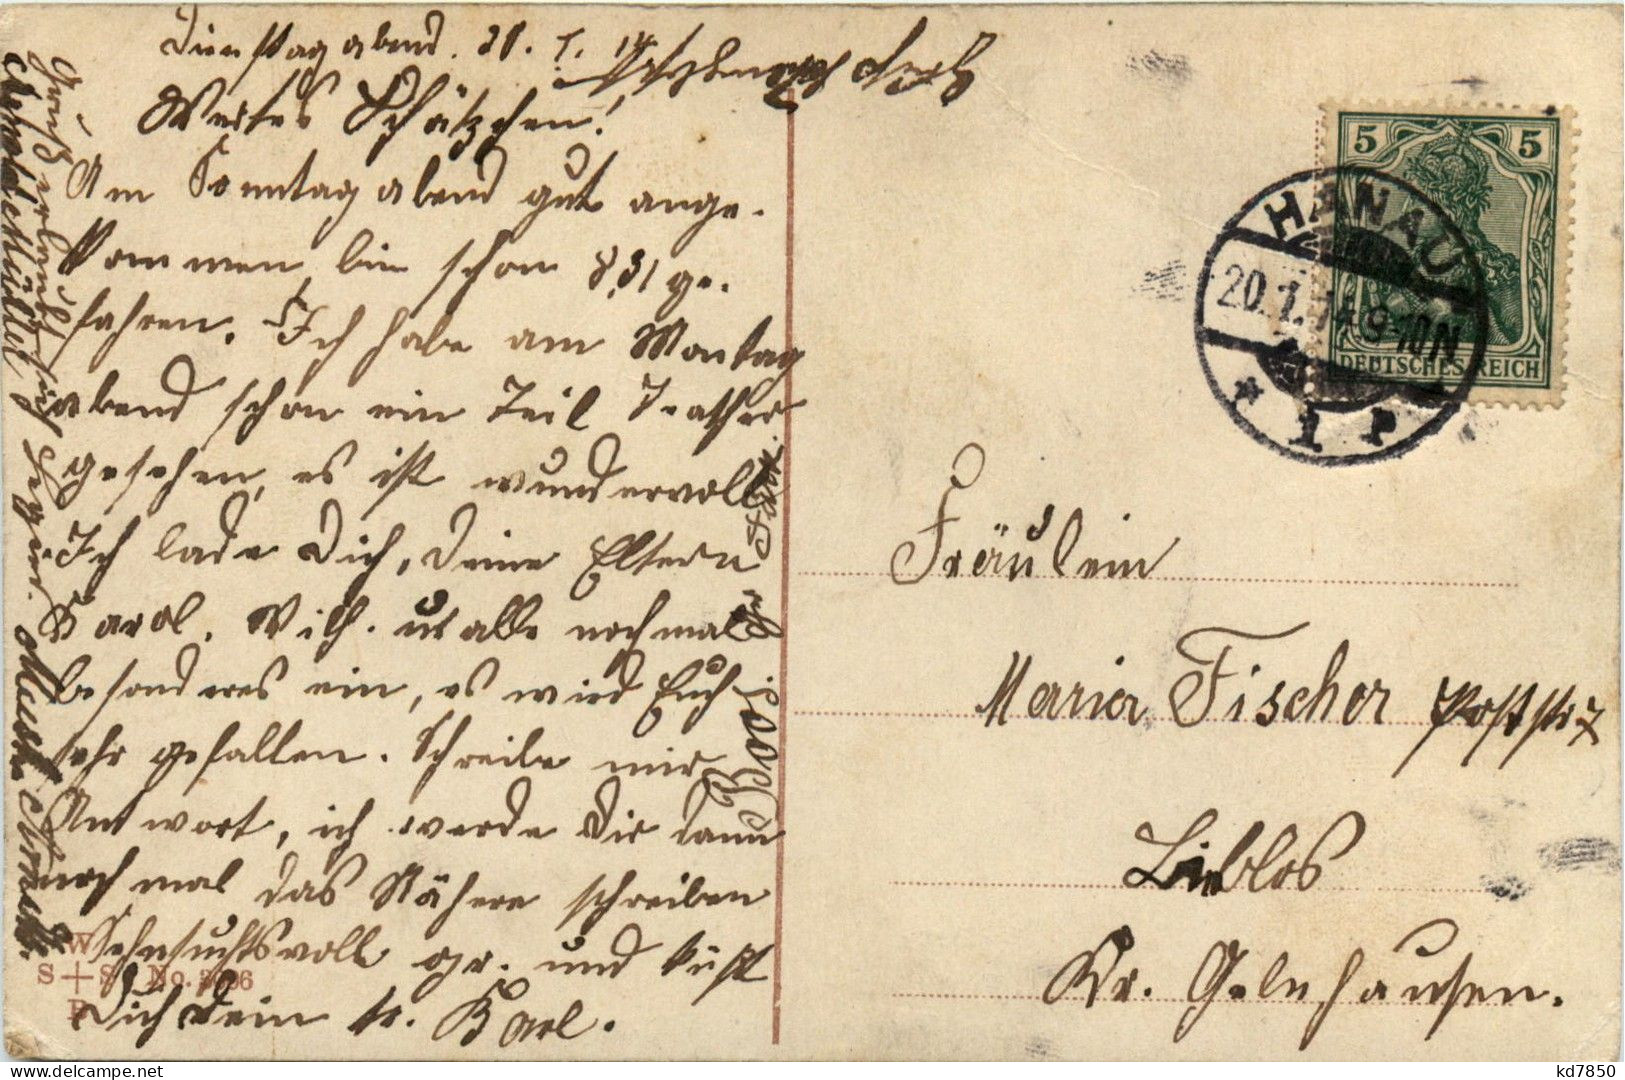 Dienstag abend. 20. 1. 14
Wertes Schätzchen!
Am Sonntag abend gut ange-
kommen, bin schon 8,31 ge-
fahren. Ich habe am Montag
abend schon ein Teil Teather
gesehen, es ist wundervoll
Ich lade Dich, Deine Eltern
Karol. Wilh. u alle nochmal
besonderes ein, es wird Euch
sehr gefallen. Schreibe mir
Antwort, ich werde Dir dann
noch mal das Nähere schreiben
Sehnsuchtsvoll gr. und küßt
Dich Dein tr. Karl.
Gruß erlaubt sich
HANAU
20.1.14. 9-10N
* 1 P
5 5
DEUTSCHES REICH
Fräulein
Maria Fischer Poststr 7
Lieblos
Kr. Gelnhausen.
W
S+S No.
kd7850